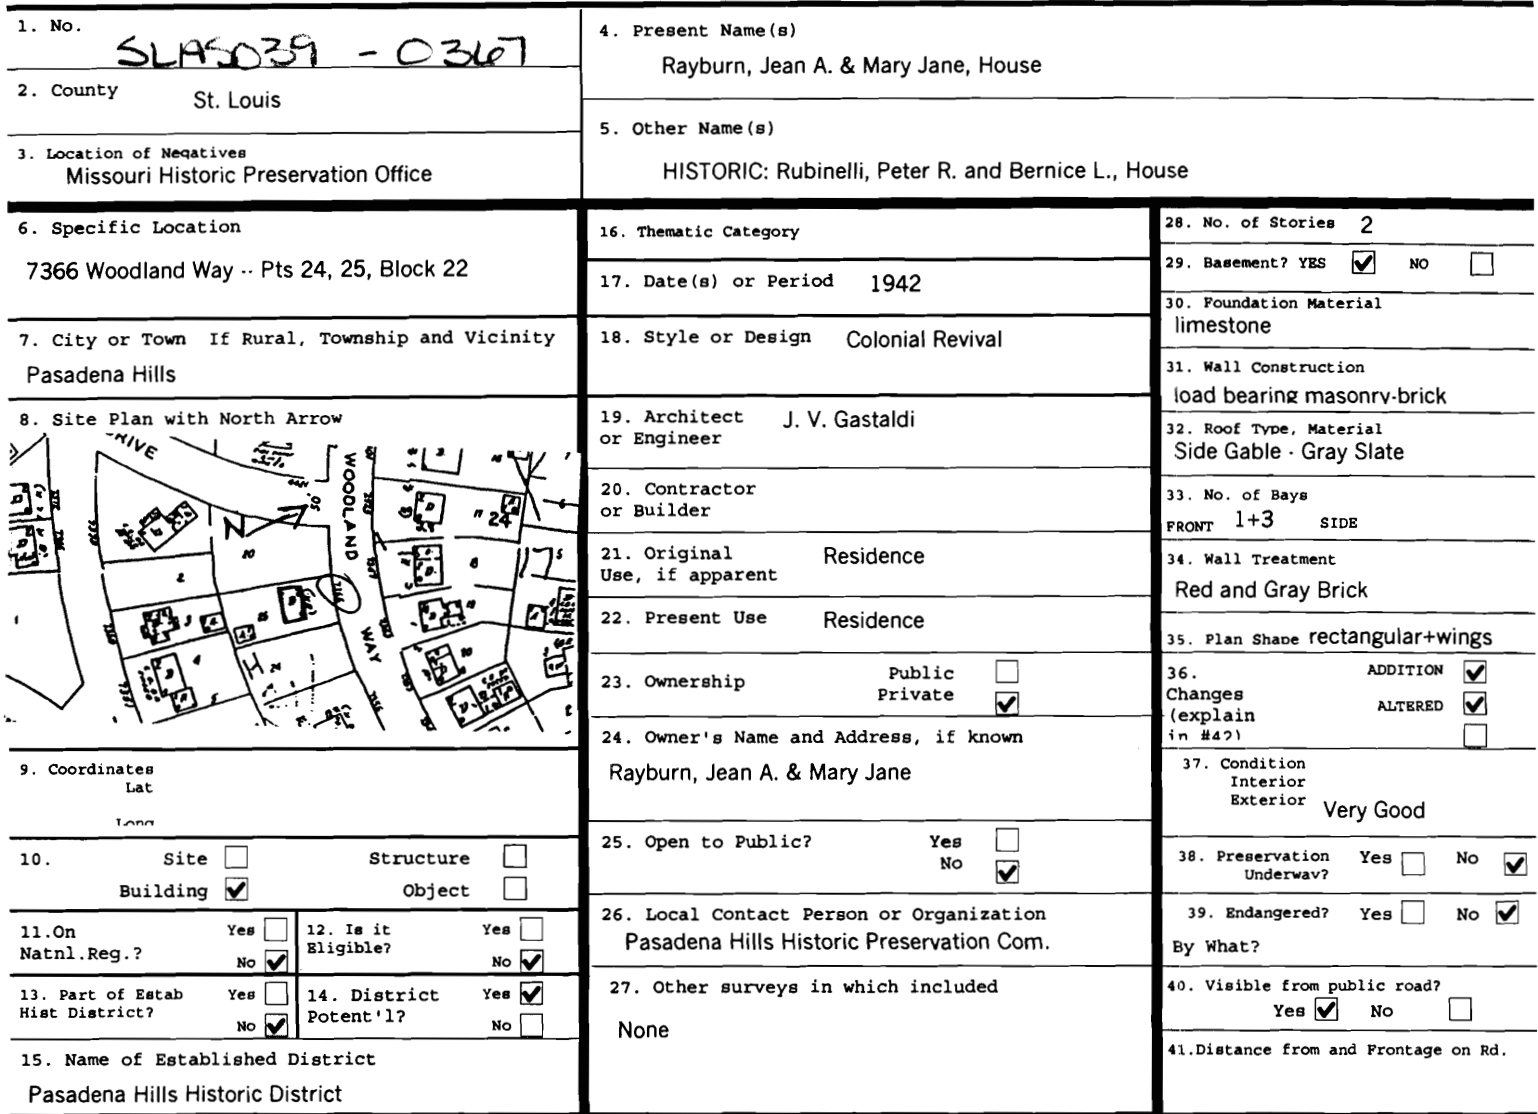 1. No.
SLASD39 - 0367
2. County
St. Louis
3. Location of Negatives
Missouri Historic Preservation Office
4. Present Name(s)
Rayburn, Jean A. & Mary Jane, House
5. Other Name(s)
HISTORIC: Rubinelli, Peter R. and Bernice L., House
6. Specific Location
7366 Woodland Way -- Pts 24, 25, Block 22
7. City or Town If Rural, Township and Vicinity
Pasadena Hills
8. Site Plan with North Arrow
RIVE
WOODLAND
WAY
N
24
50'
20
2
3
4
5
25
7366
9. Coordinates
Lat
Long
10. Site Structure
Building Object
11.On Yes
Natnl.Reg.? No
12. Is it Yes
Eligible? No
13. Part of Estab Yes
Hist District? No
14. District Yes
Potent'l? No
15. Name of Established District
Pasadena Hills Historic District
16. Thematic Category
17. Date(s) or Period 1942
18. Style or Design Colonial Revival
19. Architect J. V. Gastaldi
or Engineer
20. Contractor
or Builder
21. Original Residence
Use, if apparent
22. Present Use Residence
23. Ownership Public
Private
24. Owner's Name and Address, if known
Rayburn, Jean A. & Mary Jane
25. Open to Public? Yes
No
26. Local Contact Person or Organization
Pasadena Hills Historic Preservation Com.
27. Other surveys in which included
None
28. No. of Stories 2
29. Basement? YES NO
30. Foundation Material
limestone
31. Wall Construction
load bearing masonry-brick
32. Roof Type, Material
Side Gable - Gray Slate
33. No. of Bays
FRONT 1+3 SIDE
34. Wall Treatment
Red and Gray Brick
35. Plan Shape rectangular+wings
36. ADDITION
Changes
(explain ALTERED
in #42)
37. Condition
Interior
Exterior Very Good
38. Preservation Yes No
Underway?
39. Endangered? Yes No
By What?
40. Visible from public road?
Yes No
41.Distance from and Frontage on Rd.